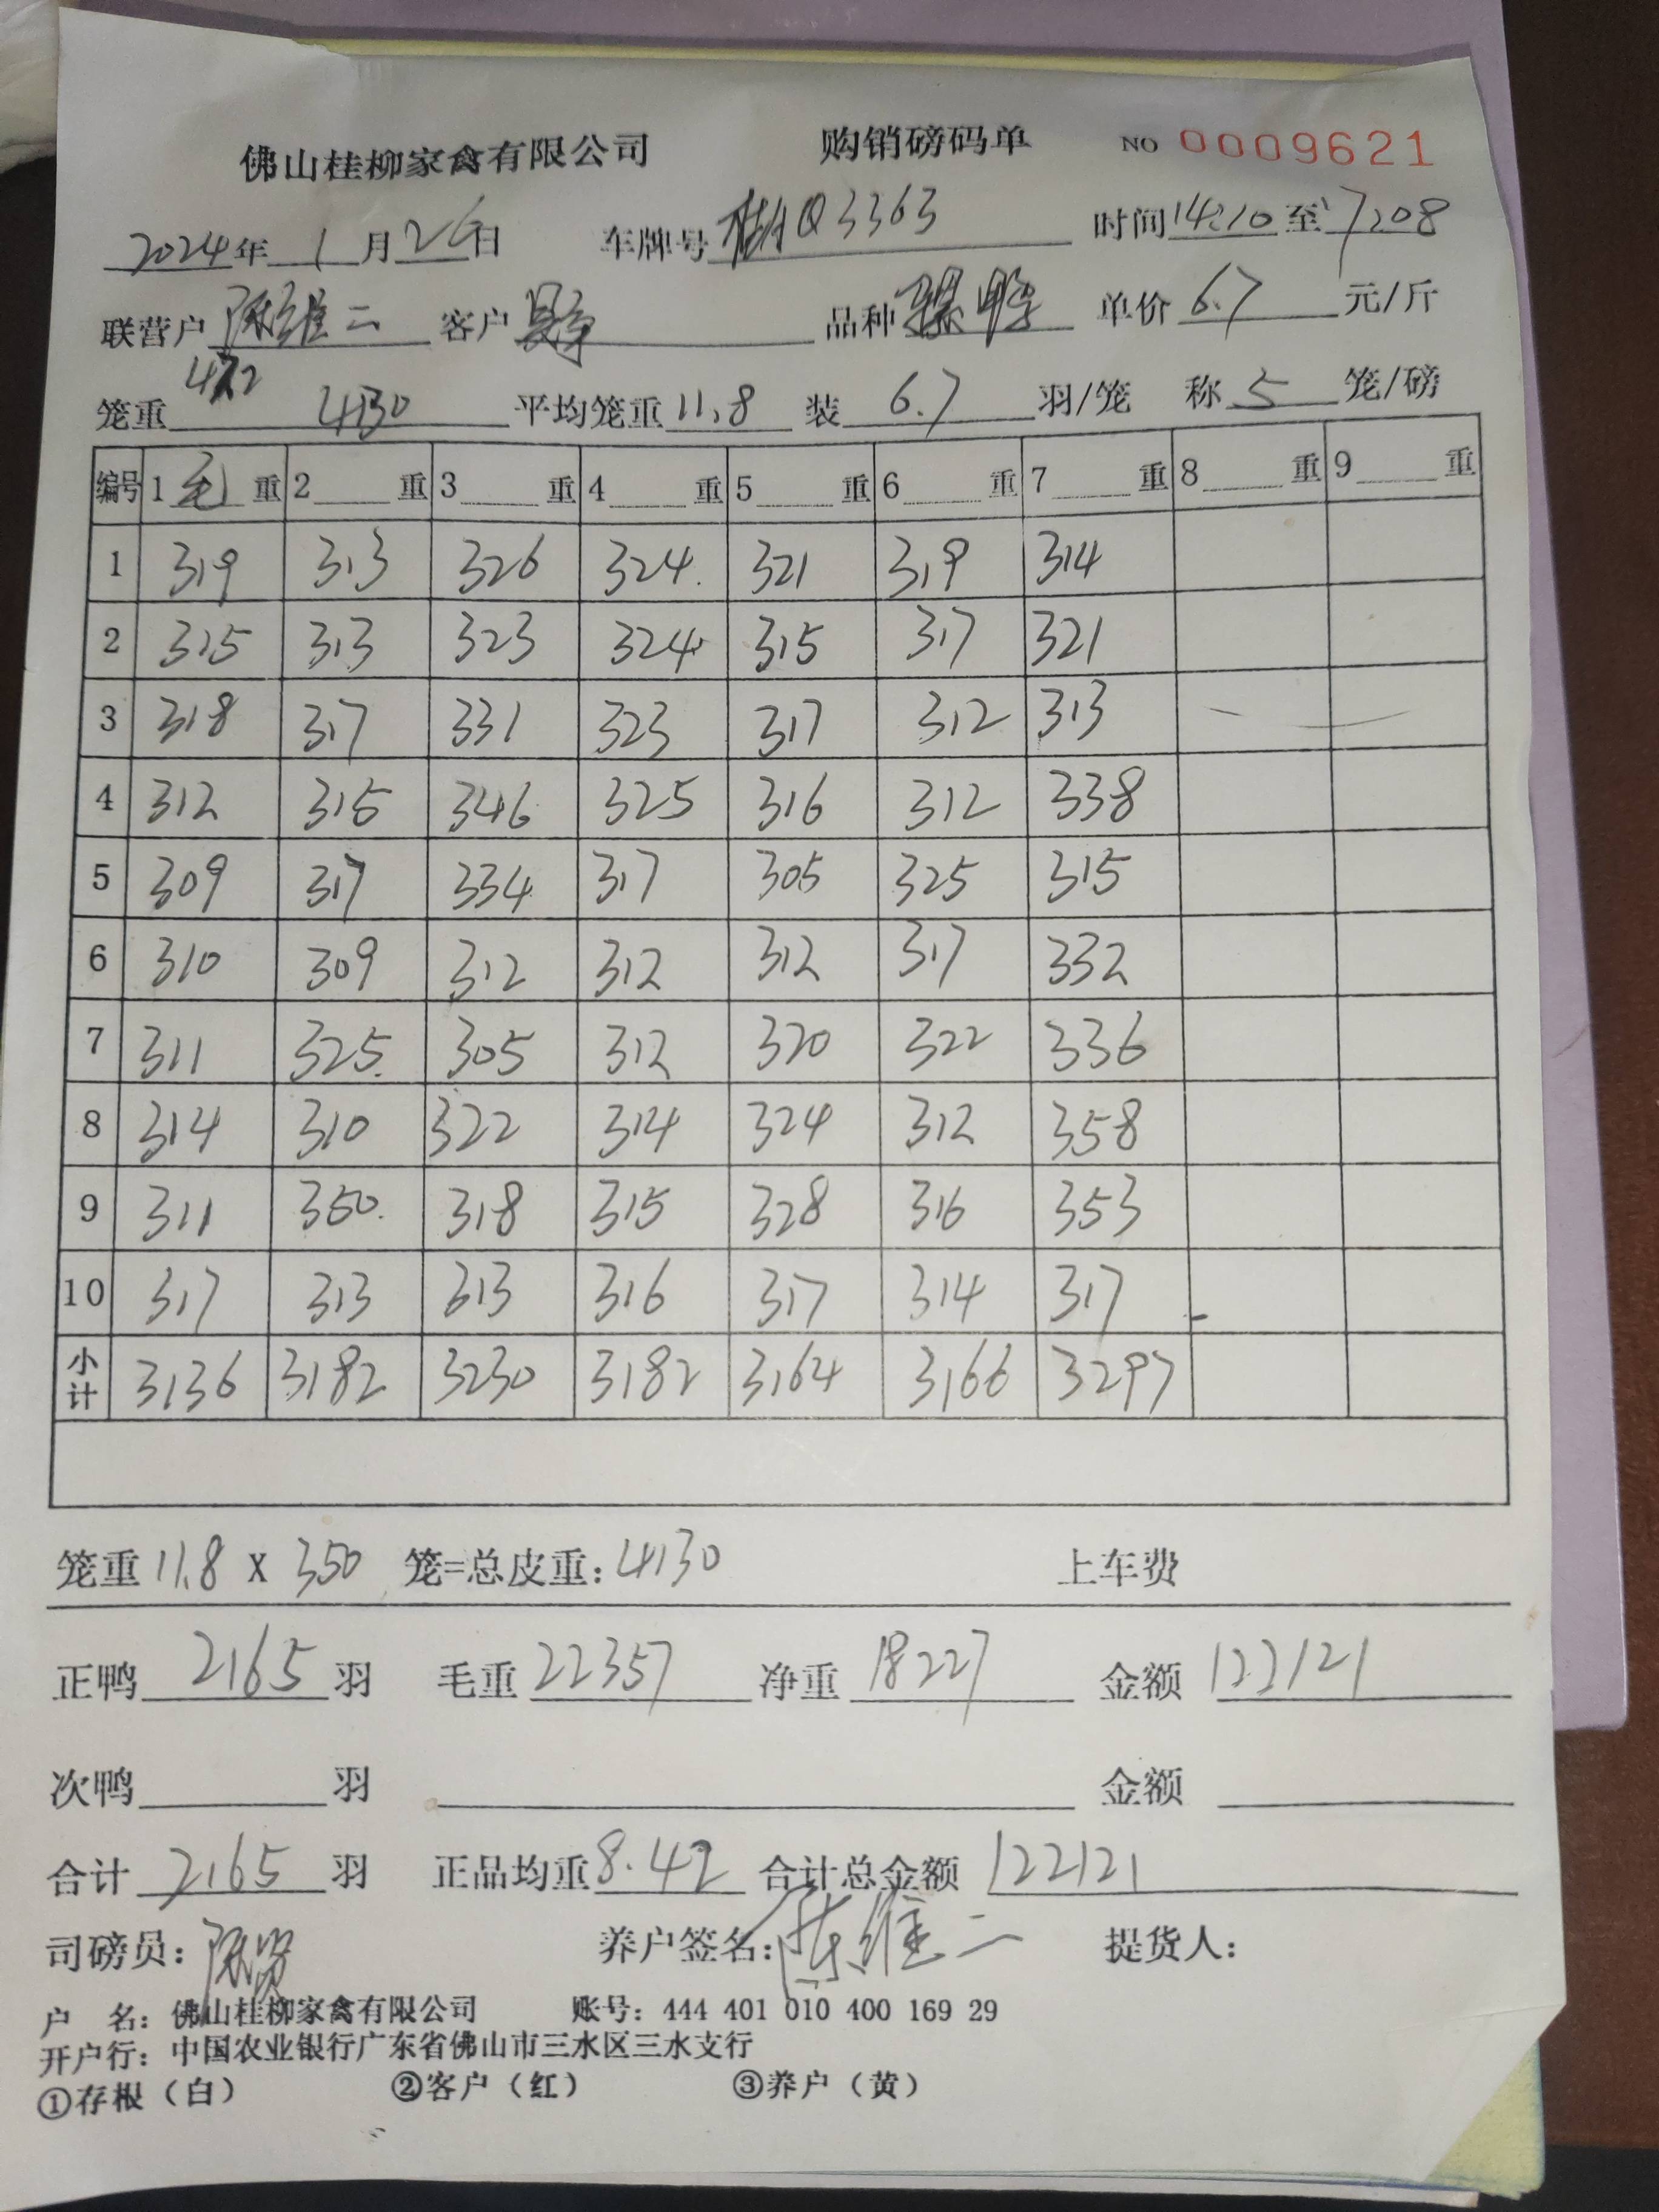 佛山桂柳家禽有限公司 购销磅码单 NO 0009621
2024年 1月26日 车牌号 桂AQ3363 时间14:10至17:08
联营户 陈维二 客户 品种 骡鸭 单价 6.7 元/斤
笼重 4130 平均笼重 11.8 装 6.7 羽/笼 称 5 笼/磅
编号 1 毛 重 2 重 3 重 4 重 5 重 6 重 7 重 8 重 9 重
1 319 313 326 324 321 319 314
2 315 313 323 324 315 317 321
3 318 317 331 323 317 312 313
4 312 315 346 325 316 312 338
5 309 317 334 317 305 325 315
6 310 309 312 312 312 317 332
7 311 325 305 312 320 322 336
8 314 310 322 314 324 312 358
9 311 350 318 315 328 316 353
10 317 313 313 316 317 314 317
小计 3136 3182 3230 3182 3164 3166 3297
笼重 11.8 X 350 笼=总皮重: 4130 上车费
正鸭 2165 羽 毛重 22357 净重 18227 金额 122121
次鸭 羽 金额
合计 2165 羽 正品均重 8.42 合计总金额 122121
司磅员: 养户签名: 陈维二 提货人:
户 名: 佛山桂柳家禽有限公司 账号: 444 401 010 400 169 29
开户行: 中国农业银行广东省佛山市三水区三水支行
①存根（白） ②客户（红） ③养户（黄）